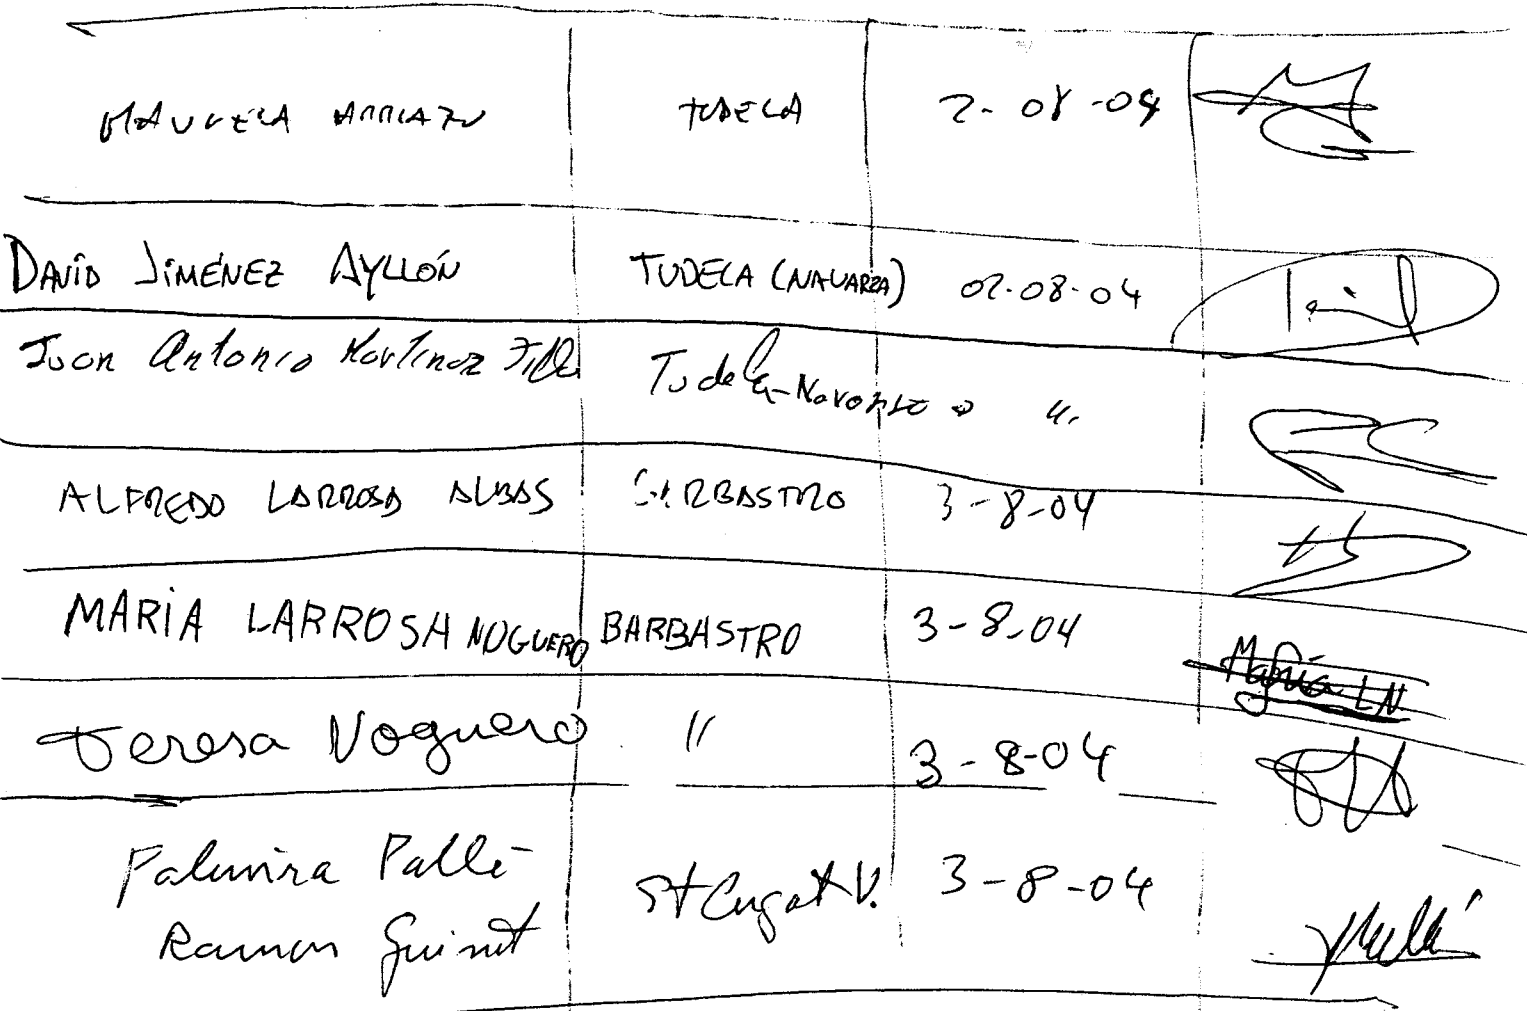 ARRIAZU TUDELA 2-08-04
DAVID JIMÉNEZ AYLLÓN TUDELA (NAVARRA) 02-08-04
Juan Antonio Martinez Tudela-Navarra "
ALFREDO LARROSA ALBAS BARBASTRO 3-8-04
MARIA LARROSA NOGUERO BARBASTRO 3-8-04 Maria LN
Teresa Noguero " 3-8-04
Palmira Pallé St Cugat V. 3-8-04
Ramon Guinot